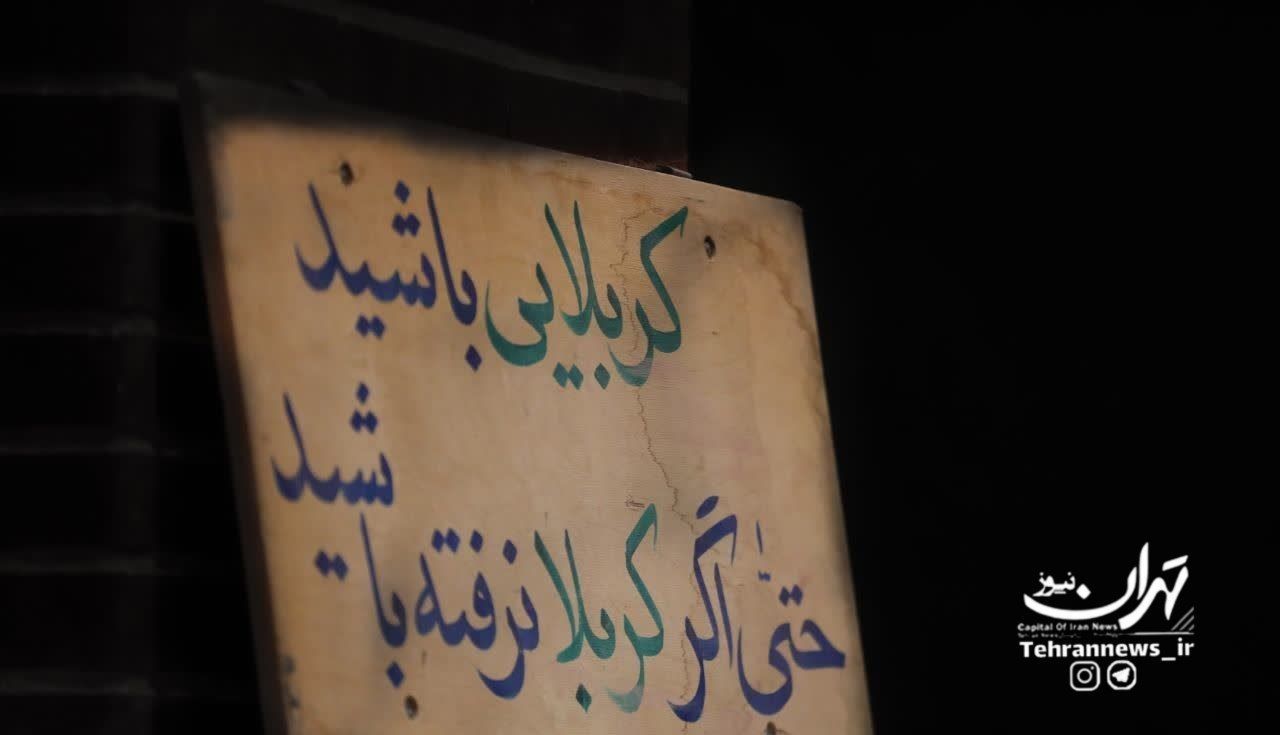 کربلایی باشید
حتّیٰ اگر کربلا نرفته باشید
تهران نیوز
Capital Of Iran News
Tehrannews_ir